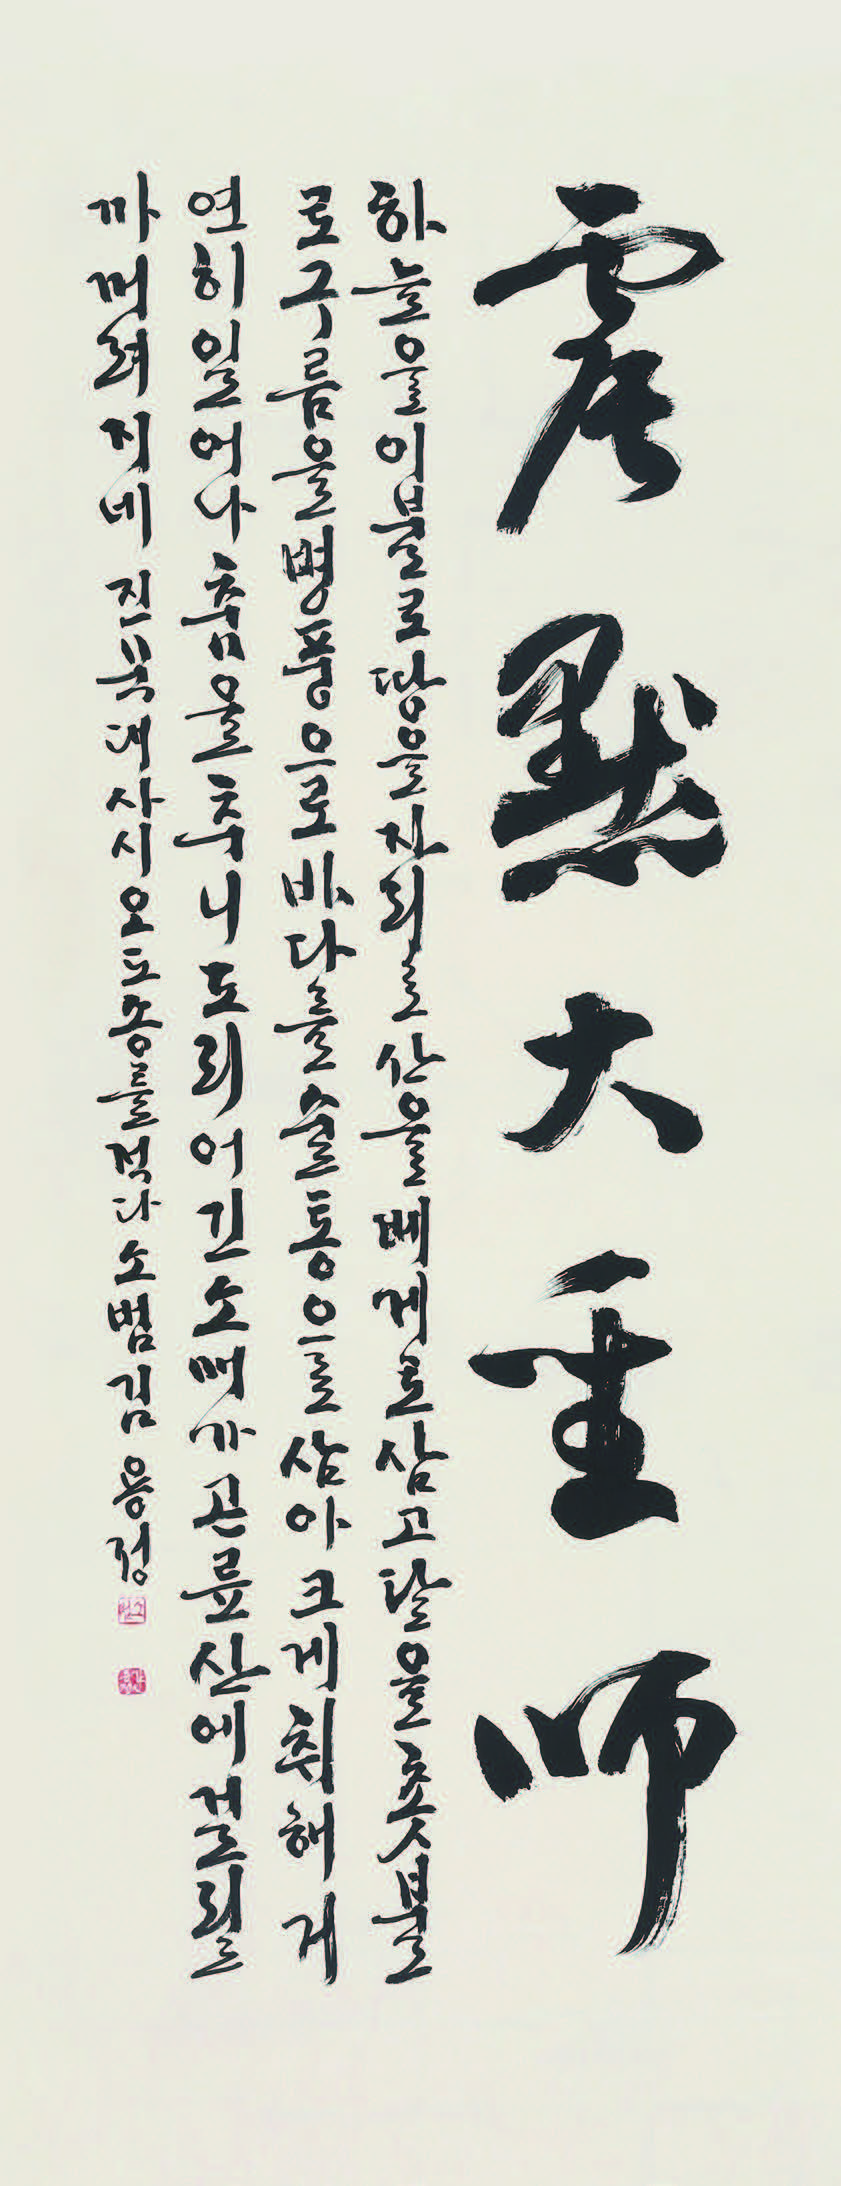 震默大師
하늘을이불로땅을자리로산을베게로삼고달을촛불
로구름을병풍으로바다를술통으로삼아크게취해거
연히일어나춤을추니도리어긴소매가곤륜산에걸릴
까꺼려지네 진묵대사시오도송를적다소범김용정